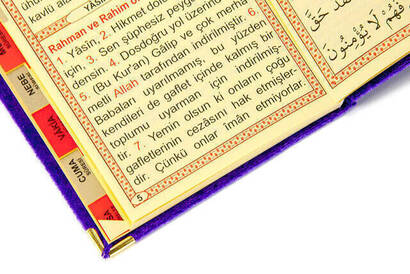 YÂSÎN
Rahman ve Rahîm o
1. Yâsîn, 2. Hikmet dolu
için, 3. Sen şüphesiz peygam
densin. 4. Dosdoğru yol üzerind
5. (Bu Kur'an) Gâlip ve çok merha
metli Allah tarafından indirilmiştir. 6
Babaları uyarılmamış, bu yüzden
kendileri de gaflet içinde kalmış bir
toplumu uyarman için indirilmiş-
tir. 7. Yemin olsun ki onların çoğu
gafletlerinin cezâsını hak etmiştir.
dir. Çünkü onlar îmân etmiyorlar.
5
فَهُمْ لَا يُؤْمِنُونَ
حَقَّ
NEBE
SÛRESİ
VAKIA
CUMA
SÛRESİ